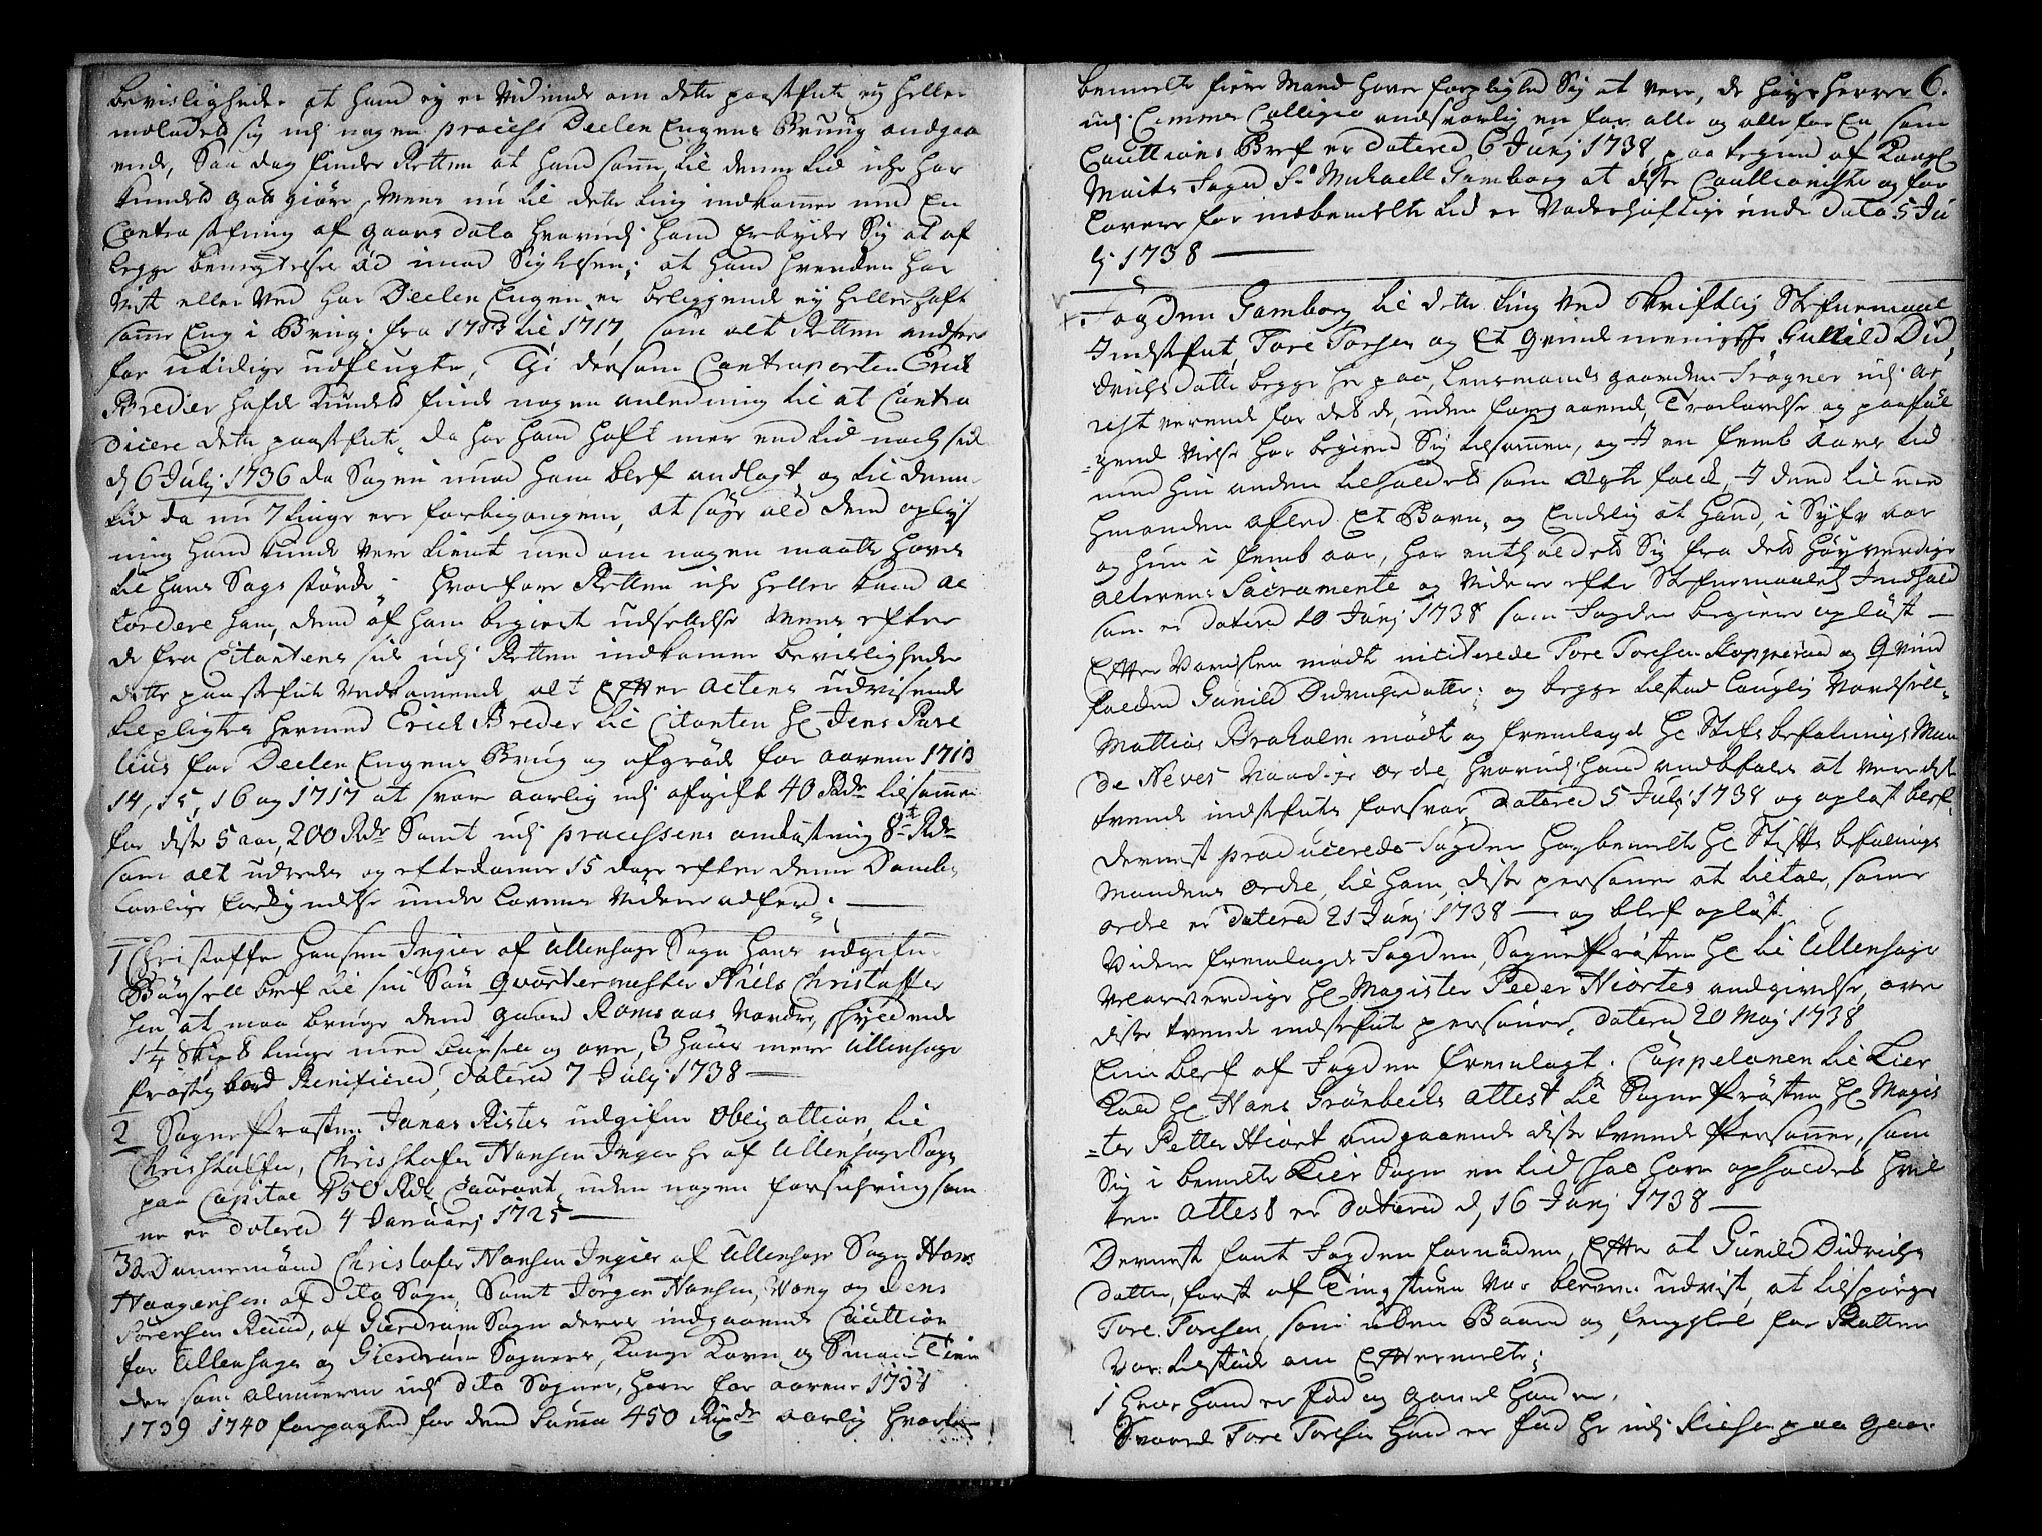 bevisligheder at hand ey er vidende om dette paastefnte ey heller
indladed sig udj nogen process Deelen Engens Brug andgaa
ende, Saa dog finder Retten at hand samme til denne tid iche har
kundet godtgiøre, Mens nu til dette ting indkommer med En
Contra stefning af gaars dato hvorudj hand Erbyder Sig at af
legge benegtelse Æd imod Sigtelsen, at hand hverchen har
vist eller ved hvor Deelen Engen er beliggende ey heller haft
samme Eng i Brug fra 1713 til 1717, som alt Retten andseer
for utidige udflugter, Thi dersom Contraparten Erich
Breder hafde kundet finde nogen anledning til at Contra
dicere dette paastefnte, da har hand haft mer end tid nock sid
d 6 Julj 1736 da Sagen imod ham blef andlagt, og til denne
tid da nu 7 tinge ere forbigangene, at søge ald dend oplys
ning hand kunde vere tient med om nogen maatte haves
til hans Sags størche, hvorfore Retten iche heller kand ac
cordere ham, dend af ham begierte udsettelse Mens efter
de fra Citantens side udj Retten indkomne bevisligheder
dette paastefnte vedkommende, alt Efter actens udvisende
tilpligtes hermed Erich Breder til Citanten Hr Jens Pare
lius for Deelen Engens Brug og afgrøde for aarene 1713
14, 15, 16 og 1717 at svare aarlig udj afgift 40 Rdr tilsammen
for diste 5 aar, 200 Rdr Samt udj processens omkostning 8te Rdr
som alt udredes og efterkommes 15 dage efter denne Doms
lovlige forkyndelse under Lovens videre adferd;
1 Christoffer Hansen Ingier af Ullensager Sogn hans udgifne
Bøgsell bref til sin Søn Qvartermester Niels Christoffer
sen at maa bruge dend gaard Romsaas Nordre, skyldende
1¼ Skip℔ tunge med bøxsell og over, 3 huuder mere Ullensager
Præste bord Beneficered, datered 7 Julj 1738
2 Sogne Præsten Jonas Risters udgifne Obligattion, til
Christoffer, Christofer Hansen Ingier her af Ullensager Sogn
paa Capital 450 Rdr Courant, uden nogen forsichring som
me er datered 4 Januarj 1725
3 De Dannemænd Christofer Hansen Ingier af Ullensager Sogn Hans
Haagensen af dito Sogn, Samt Jørgen Hansen, Wang og Jens
Sørensen Ruud, af Gierdrum Sogn deres indgaaende Caution
for Ullensager og Gierdrum Sogners, Konge Korn og Smaa Tien
der som almuerne udj dito Sogner, hver for aarene 1738
1739 1740 forpagted for dend Summa 450 Rixdr aarlig hvorfor
6.
bemelte fiere Mænd haver forpligted Sig at vere, de høye herrer
udj Cammer Collegio andsvarlig en for alle og alle for En som
Cautions Bref er datered 6 Junj 1738, paa tegned af Kongl
Maits Foged Sr Michaell Gamborg at diste Cautionister og for
lovere for indbemelte tid er vederhæftige under dato 5 Ju
lj 1738
Fogden Gamborg til dette ting ved skriftlig Stefnemaal
Indstefnt, Tore Torsen og Et qvindemenniske Gunild Did,
drichs datter begge her paa, Lensmands gaarden Frogner udj ar
rest verende for det de, uden foregaaende, Trolovelse og paaføl
=gende vielse har begived Sig tilsammen, og I en femb aars tid
med hin anden tilholdet som Ægte folck, I dend tid med
hinanden afled Et Barn, og Endelig at hand, i Syf aar
og hun i femb aar, har entholdet Sig fra det høyverdige
alterens Sacramente og videre efter Stefnemaalets Indhold
som er datered 10 Junj 1738 som Fogden begierte oplæst
Efter Varslen mødt inciterede Tore Toresen Kopperud og Qvind
folcket Gunild Didrichsdatter; og begge tilstod lauglig Vardsell
Mattias Braholm mødt og fremlagde Hr Stifts befalings Man
de Neves Naadige ordre, hvorudj hand andbefales at vere diste
tvende indstefntes forsvar, datered 5 Julj 1738 og oplæst blef
dernest producerede Fogden høybemelte Hr Stifts befalings
Mandens ordre, til ham, diste personer at tiltale, samme
ordre er datered 21 Junj 1738 og blef oplæst.
Videre fremlagde Fogden, Sogne Præsten Hr til Ullensager
velærverdige Hr Magister Peder Hiortes andgivelse, over
diste tvende indstefnte personer, datered 20 Maj 1738
End blef af Fogden fremlagt, Cappelanen til Lier
kald Hr Hans Grønbechs attest til Sogne Præsten Hr Magis
=ter Petter Hiort andgaaende diste tvende Personer, som
Sig i bemelte Lier Sogn en tid skal have opholdet hvil
ken attest er datered d, 16 Junj 1738
Dernest fant Fogden fornøden, Efter at Gunild Didrichs
datter, først af Tingstuen var bleven udvist, at tilspørge
Tore Toresen, som uden Baand og fengsel for Retten
var tilstæde om Eftermelte;
1 hvor hand er fød og gamel hand er,
Svarede Tore Toresen hand er fød her udj Kiesen paa gaar